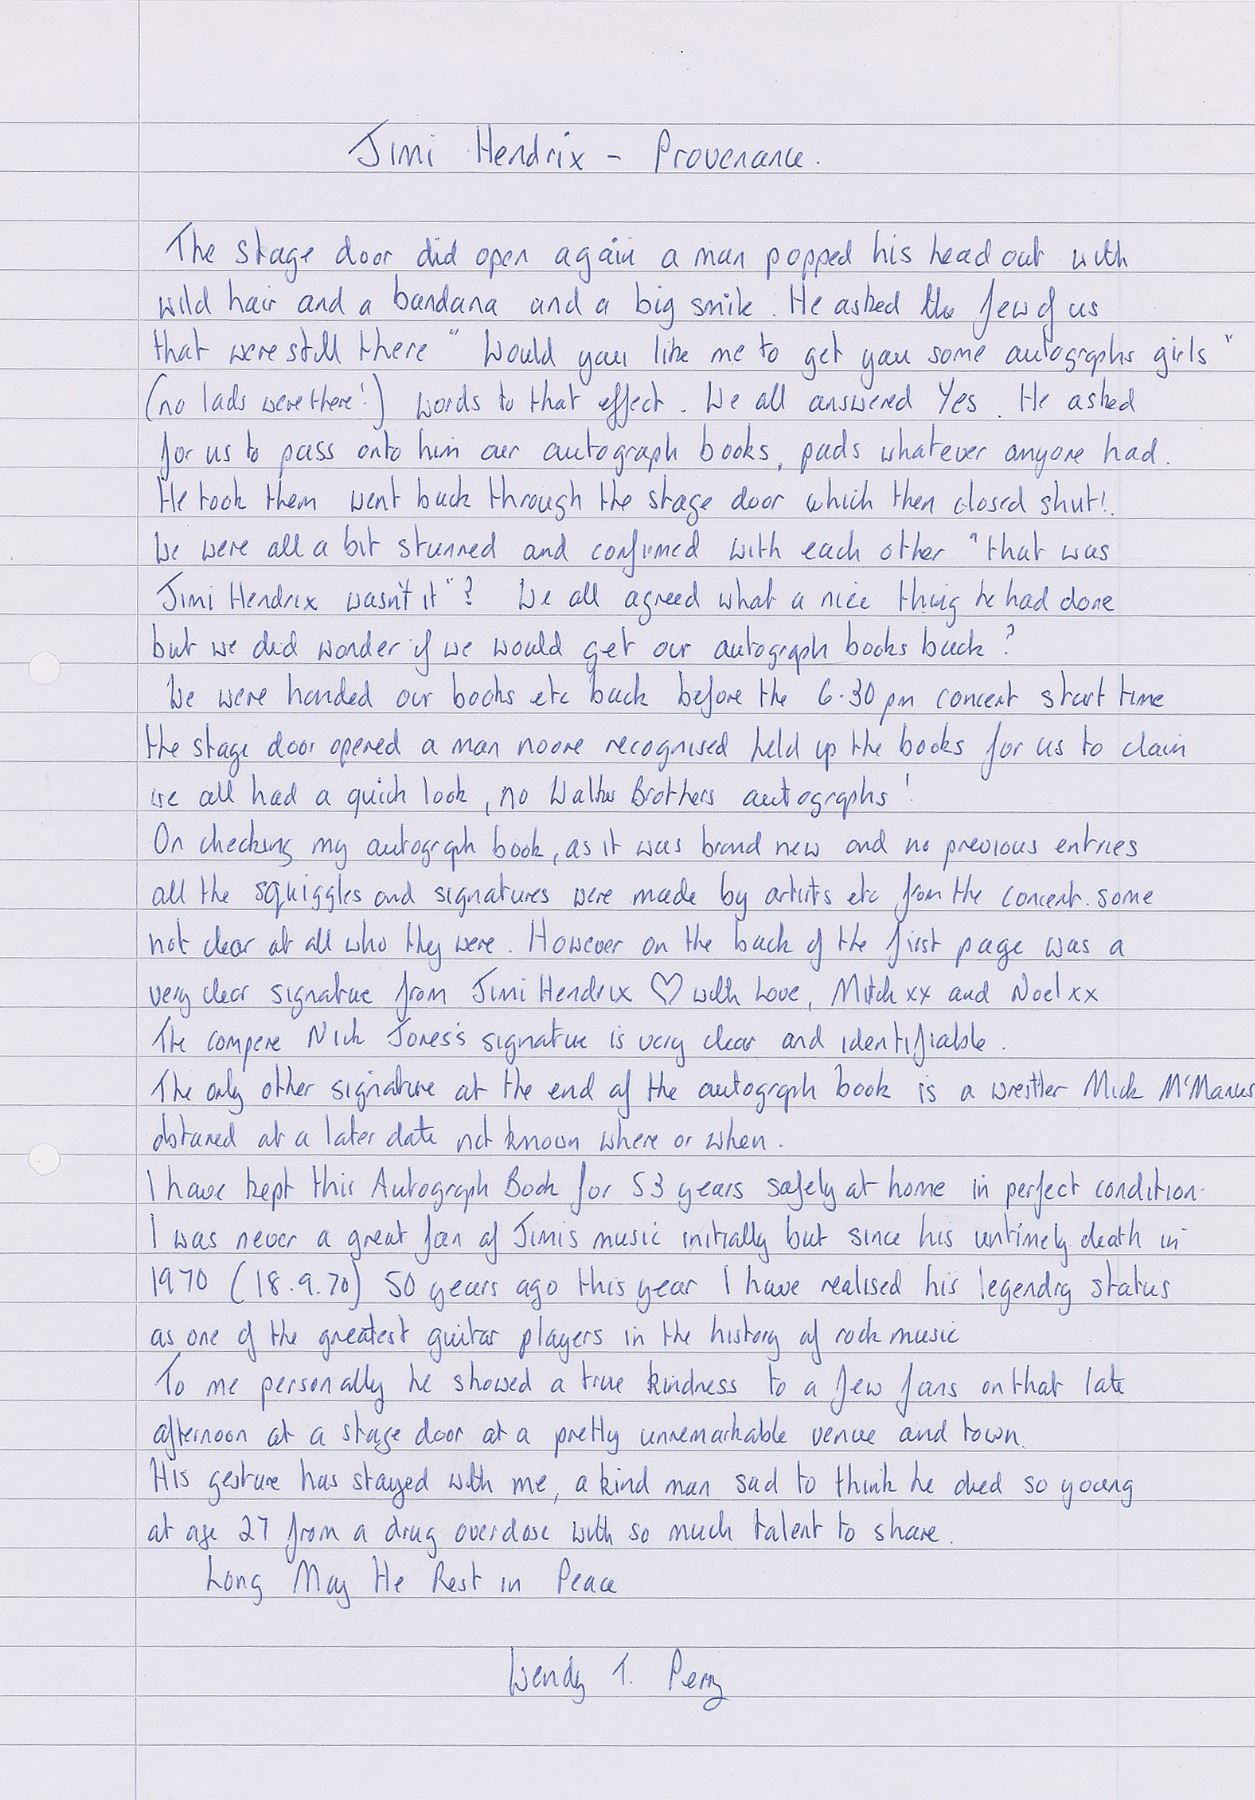 Jimi Hendrix - Provenance.
The stage door did open again a man popped his head out with
wild hair and a bandana and a big smile. He asked the few of us
that were still there "Would you like me to get you some autographs girls"
(no lads were there!) words to that effect. We all answered Yes. He asked
for us to pass onto him our autograph books, pads whatever anyone had.
He took them went back through the stage door which then closed shut!.
We were all a bit stunned and confirmed with each other "that was
Jimi Hendrix wasn't it"? We all agreed what a nice thing he had done
but we did wonder if we would get our autograph books back?
We were handed our books etc back before the 6.30 pm concert start time
the stage door opened a man noone recognised held up the books for us to claim
we all had a quick look, no Walker Brothers autographs!
On checking my autograph book, as it was brand new and no previous entries
all the squiggles and signatures were made by artists etc from the concert. some
not clear at all who they were. However on the back of the first page was a
very clear signature from Jimi Hendrix ♡ with Love, Mitch xx and Noel xx
The compere Nick Jones's signature is very clear and identifiable.
The only other signature at the end of the autograph book is a wrestler Mick McManus
obtained at a later date not known where or when.
I have kept this Autograph Book for 53 years safely at home in perfect condition.
I was never a great fan of Jimi's music initially but since his untimely death in
1970 (18.9.70) 50 years ago this year I have realised his legendry status
as one of the greatest guitar players in the history of rock music
To me personally he showed a true kindness to a few fans on that late
afternoon at a stage door at a pretty unremarkable venue and town.
His gesture has stayed with me, a kind man sad to think he died so young
at age 27 from a drug overdose with so much talent to share.
Long May He Rest in Peace
Wendy T. Perry